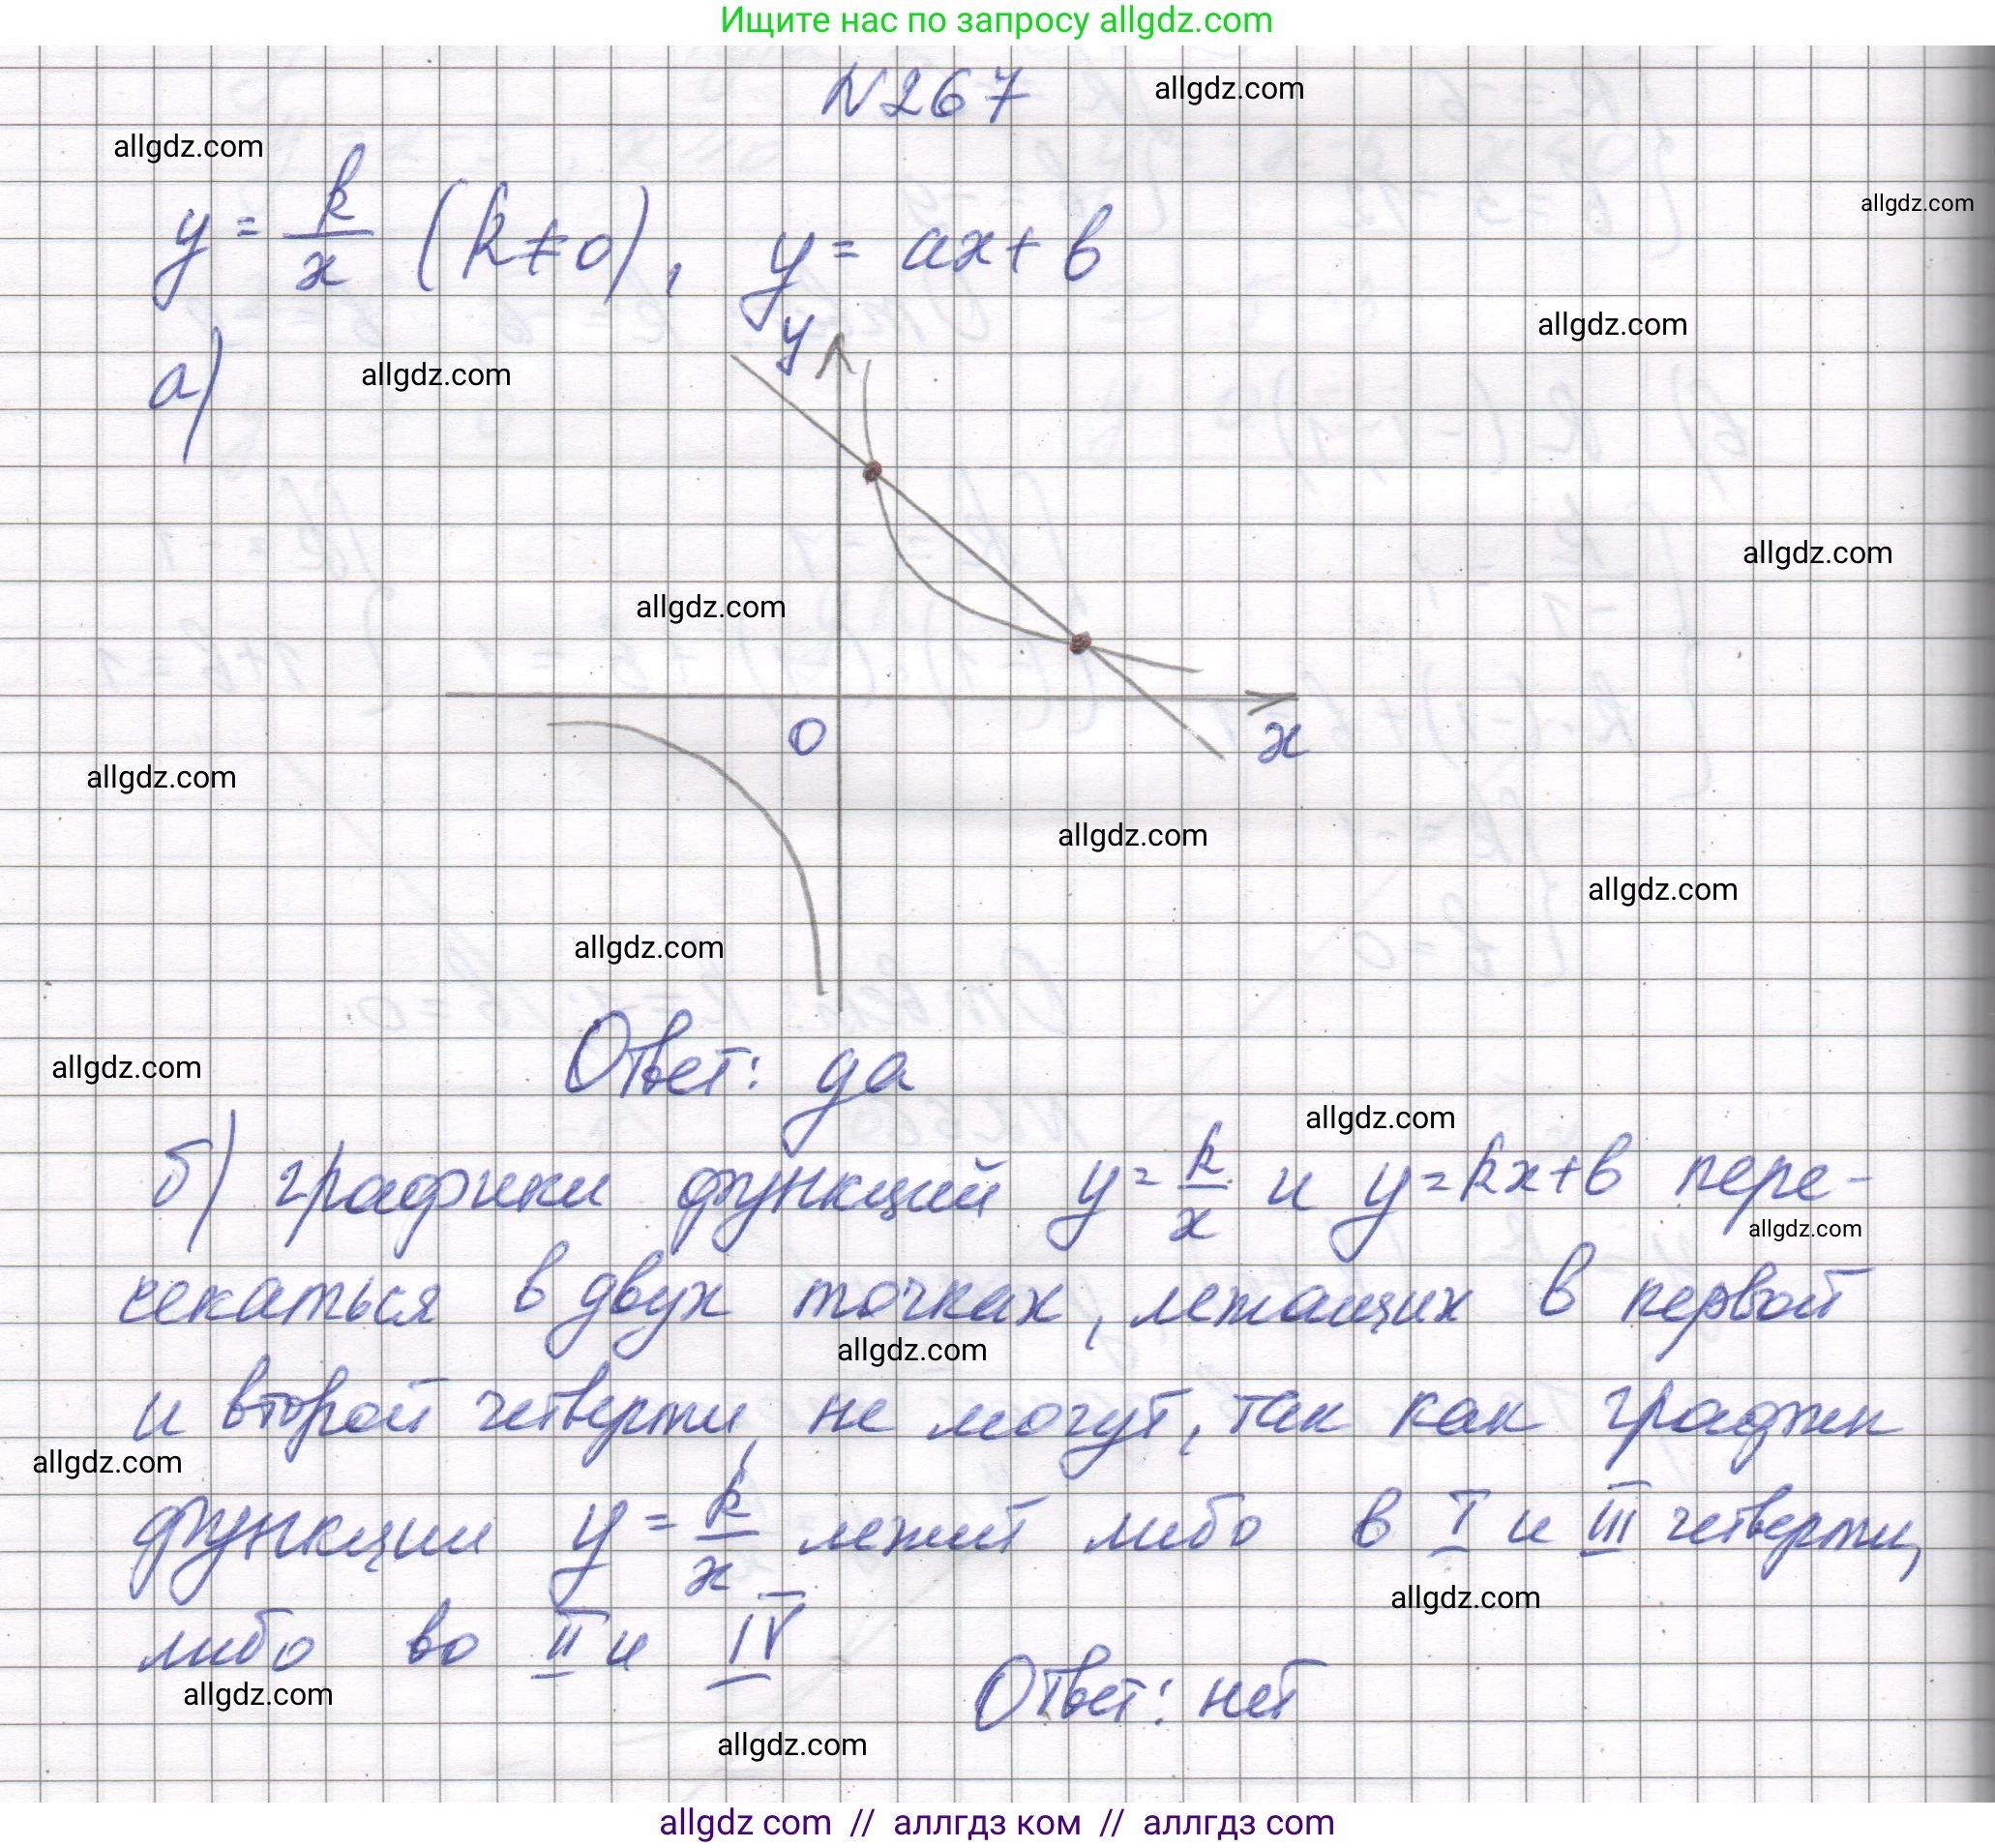 Ищите нас по запросу allgdz.com
N267
allgdz.com
allgdz.com
allgdz.com
y = k/x (k ≠ 0), y = ax + b
allgdz.com
а)
allgdz.com
y
allgdz.com
allgdz.com
0
x
allgdz.com
allgdz.com
allgdz.com
allgdz.com
Ответ: да
allgdz.com
allgdz.com
б) графики функций y = k/x и y = kx + b пере-
allgdz.com
секаться в двух точках, лежащих в первой
allgdz.com
и второй четверти, не могут, так как график
allgdz.com
функции y = k/x лежит либо в I и III четверти,
allgdz.com
либо во II и IV
allgdz.com
Ответ: нет
allgdz.com
allgdz com // аллгдз ком // аллгдз com